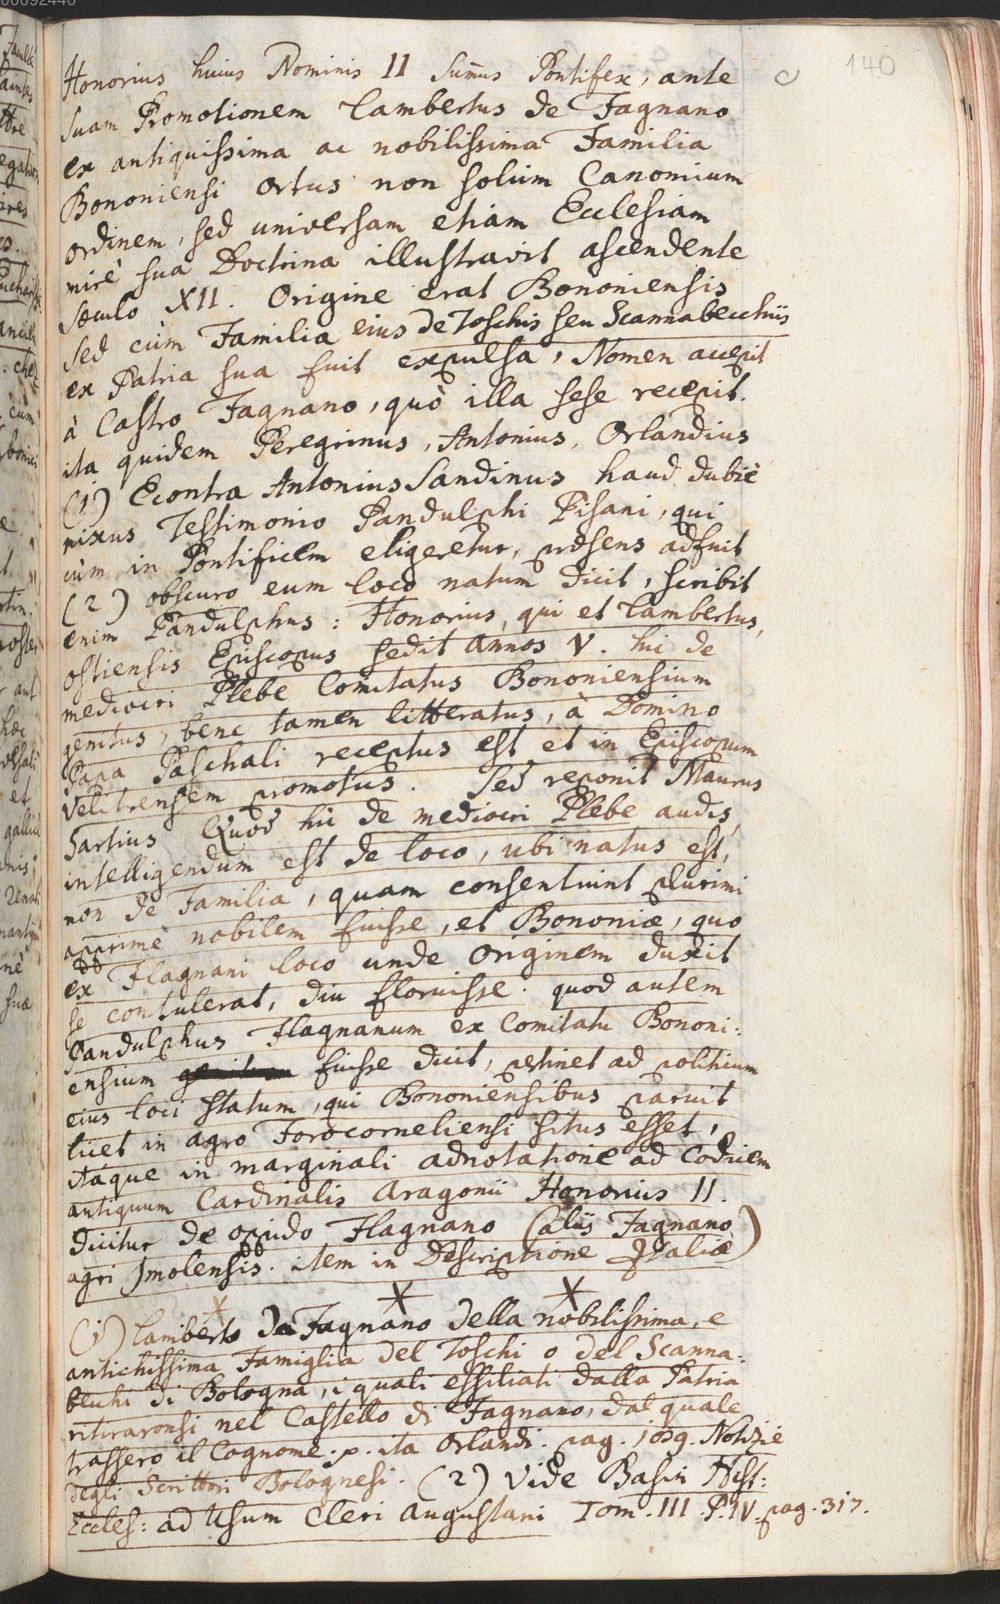 00092440
140
Honorius huius Nominis II Sum̃us Pontifex, ante
suam Promotionem Lambertus de Fagnano
ex antiquissima ac nobilissima Familia
Bononiensi ortus non solùm Canonicum
ordinem, sed universam etiam Ecclesiam
mirè sua Doctrina illustravit ascendente
sæculo XII. Origine erat Bononiensis
sed cùm Familia eius de Toschis seu Scannabecchiis
ex Patria sua fuit expulsa, Nomen accepit
à Castro Fagnano, quò illa sese recepit.
ita quidem Peregrinus, Antonius, Orlandius
(1) Econtra Antonius Sandinus haud dubiè
nixus Testimonio Pandulphi Pisani, qui
cùm in Pontificem eligeretur, præsens adfuit
(2) obscuro eum loco natum dicit, scribit
enim Pandulphus: Honorius, qui et Lambertus,
ostiensis Episcopus sedit annos V. hic de
mediocri Plebe Comitatus Bononiensium
genitus, bene tamen litteratus, à Domino
Papa Paschali receptus est et in Episcopum
Velitrensem promotus. Sed reponit Maurus
Sartius Quod hic de mediocri Plebe audis,
intelligendum est de loco, ubi natus est,
non de Familia, quam consentiunt plurimi
apprimè nobilem fuisse, et Bononiæ, quo
ex Flagnani loco unde Originem duxit
se contulerat, diu floruisse. quod autem
Pandulphus Flagnanum ex Comitatu Bononi:
ensium fuisse dicit, pertinet ad politicum
eius loci statum, qui Bononiensibus paruit
licet in agro Forocorneliensi situs esset,
itaque in marginali adnotatione ad Codicem
antiquum Cardinalis Aragonii Honorius II.
dicitur de oppido Flagnano (aliis Fagnano)
agri Imolensis. item in Descriptione Italiæ
(1) Lamberto da Fagnano della nobilissima, e
antichissima Famiglia del Toschi o del Scanna:
bechi di Bologna, i quali essiliati dalla Patria
ritiraronsi nel Castello di Fagnano, dal quale
trassero il Cognome. p. ita Orlandi. pag. 109. Notizie
degli Scrittori Bolognesi. (2) Vide Basin Hist:
Eccles: ad Usum Cleri Augustani Tom. III. P. IV. pag. 317.